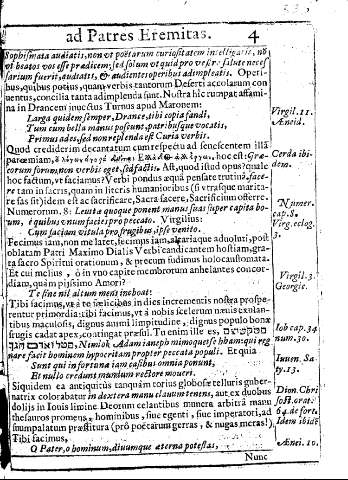 ad Patres Eremitas. 4
Sophismata audiatis, non ut poëtarum curiositatem intelligatis, nō
ut beatos vos esse prædicem; sed solum ut quid pro vestra salute neces
sarium fuerit, audiatis, & audientes operibus adimpleatis. Operi-
bus, quibus potius, quam verbis tantorum Deserti accolarum con
uentus, concilia tanta adimplenda sunt. Nostra hic rumpat affami-
na in Drancem inuectus Turnus apud Maronem:
Larga quidem semper, Drance, tibi copia fandi,
Tum cum bella manus poscunt, patribusque vocatis,
Primus ades, sed non replenda est Curia verbis.
Quod crediderim decantatum cum respectu ad senescentem illā
parœmiam, hoc est: Græ-
corum forum, non verbis eget, sed factis. Ast, quod istud opus? quale
hoc factum, vt faciamus? Verbi pondus æqua pensate trutina, face-
re tam in sacris, quam in literis humanioribus (si vtrasque marita-
re fas sit) idem est ac sacrificare, Sacra facere, Sacrificium offerre.
Numerorum. 8: Leuitæ quoque ponent manus suas super capita bo-
um, è quibus vnum facies pro peccato. Virgilius:
Cum faciam vitula pro frugibus, ipse venito.
Fecimus iam, non me latet, fecimus iam, altariaque adoluti, post
oblatam Patri Maximo Dialis Verbi candicantem hostiam, gra-
ta sacro Spiritui orationum, & precum sudimus holocaustomata.
Et cui melius, ò in vno capite membrorum anhelantes concor-
diam, quàm pijssimo Amori?
Te sine nil altum mens inchoat:
Tibi facimus, vt à te fœlicibus in dies incrementis nostra prospe-
rentur primordia: tibi facimus, vt à nobis scelerum næuis exulan-
tibus maculosis, dignus animi limpitudine, dignus populo bonæ
frugis cadat apex, contingat præsul. Tu enim ille es,
Nimlok Adam ianeph mimoquesse hbam: qui reg
nare facit hominem hypocritam propter peccata populi. Et quia
Sunt qui in fortuna iam casibus omnia ponunt,
Et nullo credunt mundum rectore moueri.
Siquidem ea antiquitùs tanquàm torius globosæ telluris guber-
natrix colorabatur in dextera manu clauum tenens, aut ex duobus
dolijs in Iouis limine. Deorum celantibus munera arbitrâ manu
thesauros promens, hominibus, siue egenti, siue imperatori, ad
suumpalatum præstitura (prò poëtarum gerras, & nugas meras!).
Tibi facimus,
O Pater, o hominum, diuumque æterna potestas,
Nunc
Virgil. 11.
Æneid.
Cerda ibi-
dem.
Numer.
cap. 8.
Virg. eclog.
3.
Virgil. 3.
Georgic.
Iob cap. 34
num. 30.
Iuuen. Sa-
ty. 13.
Dion. Chri
sost. orat.
64. de fort.
Idem ibidē
Ænei. 10.